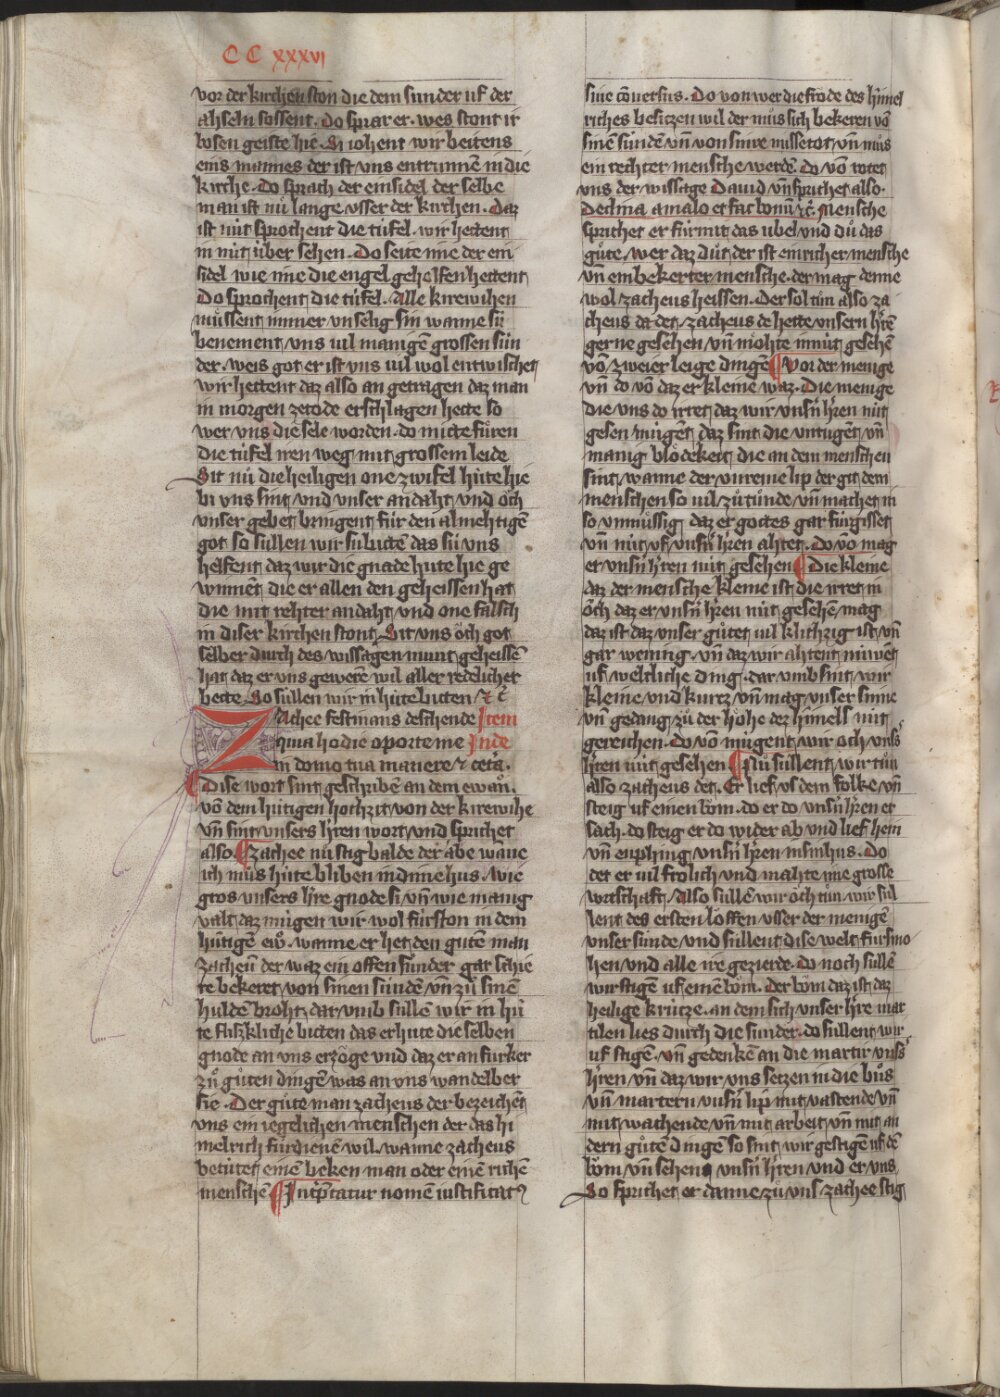 CC xxxvi
vor der kirchen ston die dem sunder uf der
ahseln sossent. Do sprar er. wes stont ir
bosen geiste hie. Si iohent wir beitens
eins mannes der ist vns entrunnē in die
kirche. do sprach der einsidel der selbe
man ist nu lange vsser der kirchen. Daz
ist nut sprochent die tufel. wir hettent
in nut uber sehen. Do seite ime der ein
sidel wie ime die engel geholfen hettent
Do sprochent die tufel. Alle kirewihen
mussent inner vnselig sin wanne sú
benement vns uil manigen grossen sún
der. weis got er ist vns uil wol entwischet
wir hettent daz also an getragen daz man
in morgen ze tode erschlagen hette so
wer vns die sele worden. do mitte fůren
die tufel iren weg mit grossem leide
Sit nu die heiligen one zwifel hute hie
bi vns sint vnd vnser andaht vnd och
vnser gebet bringent für den almehtigē
got so sullen wir sú bittē das sú vns
helfent daz wir die gnade hute hie ge
winnēt die er allen den geheissen hat
die mit rehter andaht vnd one falsch
in diser kirchen stont. Sit vns och got
selber durch des wissagen munt geheissē
hat daz er vns gewerē wil aller redelicher
bette. So sullen wir in hute bitten ⁊ c̄
Zachee festinans descende Item
quia hodie oporte me Inde
in domo tua manere ⁊ ceta.
Dise wort sint geschribē an dem ewan̄.
vō dem hutigen hochzit von der kirewihe
vn̄ sint vnsers h̓ren wort vnd sprichet
also. Zachee nu stig balde der abe wāne
ich můs hute bliben in dime hus. wie
gros vnsers h̓re gnode si vn̄ wie manig
valt daz mugen wir wol fúrston in dem
hutigē ewō. wanne er het den gůtē man
zacheū der waz ein offen sunder gar schie
re bekeret von sinen súndē vn̄ zů sinē
huldē broht. dar vmb sullē wir in hú
te fliszkliche bitten das er hute die selben
gnode an vns erzoge vnd daz er an fúrker
zů gůten dingē was an vns wandelber
sie. Der gůte man zacheus der bezeichēt
vns ein iegelichen menschen der das hi
melrich fúrdienē wil. wanne zacheus
betutet einē beken man oder einē richē
menschē Int̓p̄tatur nomē iustificat᷒
siue cōuersus. Do von wer die frode des hímel
riches besitzen wil der můs sich bekeren vō
sinē súndē vn̄ von sinre missetot vn̄ můs
ein rechter mensche werdē. do vō rotet
vns der wissage Dauid vn̄ sprichet also.
Declina a malo et fac bonū ⁊c̄. Mensche
sprichet er fúrmit das ubel vnd dů das
gůte. wer daz důt der ist ein richer mensche
vn̄ ein bekerter mensche. der mag denne
wol zacheus heissen. Der sol tůn also za
cheus da det. zacheus de hette vnsern h̓rē
gerne gesehen vn̄ mohte in nút gesehē
vō zweier leige dingē Vor der menige
vn̄ do vō daz er kleine waz. Die menige
die vns do irret daz wir vnsn̄ h̓ren nút
gesen mugēt daz sint die vntugēt vn̄
manig blodekeit die an dem menschen
sint wanne der vnreine lip der git dem
menschen so uil zů tůnde vn̄ machet in
so vnmussig daz er gottes gar fúrgisset
vn̄ nút vf vnsn̄ h̓ren ahtet. do vō mag
er vnsn̄ h̓ren nút gesehen Die kleine
daz der mensche kleine ist die irret in
och daz er vnsn̄ h̓ren nút gesehē mag
daz ist daz vnser gůtet uil klichzig ist vn̄
gar wennig vn̄ daz wir ahtent núwet
uf weltliche ding. dar vmb sint wir
kleine vnd kurtz vn̄ mag vnser sinne
vn̄ gedang zů der hohe dez himels nút
gereichen. do vō mugent wir och vnss̓
h̓ren nút gesehen Nu sullent wir tůn
also zacheus det. Er lief vs dem folke vn̄
steig uf einen bom. do er do vnsn̄ h̓ren er
sach. do steig er do wider ab vnd lief hein
vn̄ enpfing vnsn̄ h̓ren in sin hus. Do
det er uil frolich vnd mahte ime grosse
wirtschaft. Also sullē wir och tůn wir sul
lent des ersten loffen vsser der menigē
vnser súnde vnd sullent dise welt fúrsmo
hen vnd alle ire gezierde. do noch sullē
wir stigē uf einē bom. Der bom daz ist daz
heilige krútze. an dem sich vnser h̓re mar
tilen lies durch die sunder. do sullent wir
uf stigē. vn̄ gedenkē an die martir vnss̓
h̓ren vn̄ daz wir vns setzen in die bůs
vn̄ martern vnsn̄ lip mit vastende vn̄
mit wachende vn̄ mit arbeit vn̄ mit an
dern gůtē dingē so sint wir gestigē uf dē
bom vn̄ sehent vnsn̄ h̓ren vnd er vns.
So sprichet er danne zů vns zachee stig